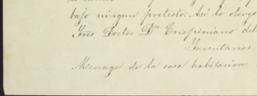 bajo ningun pretesto. Asi lo otorgo
Dn. Crispiniano del
Inventarios.
Menage de la casa habitacion